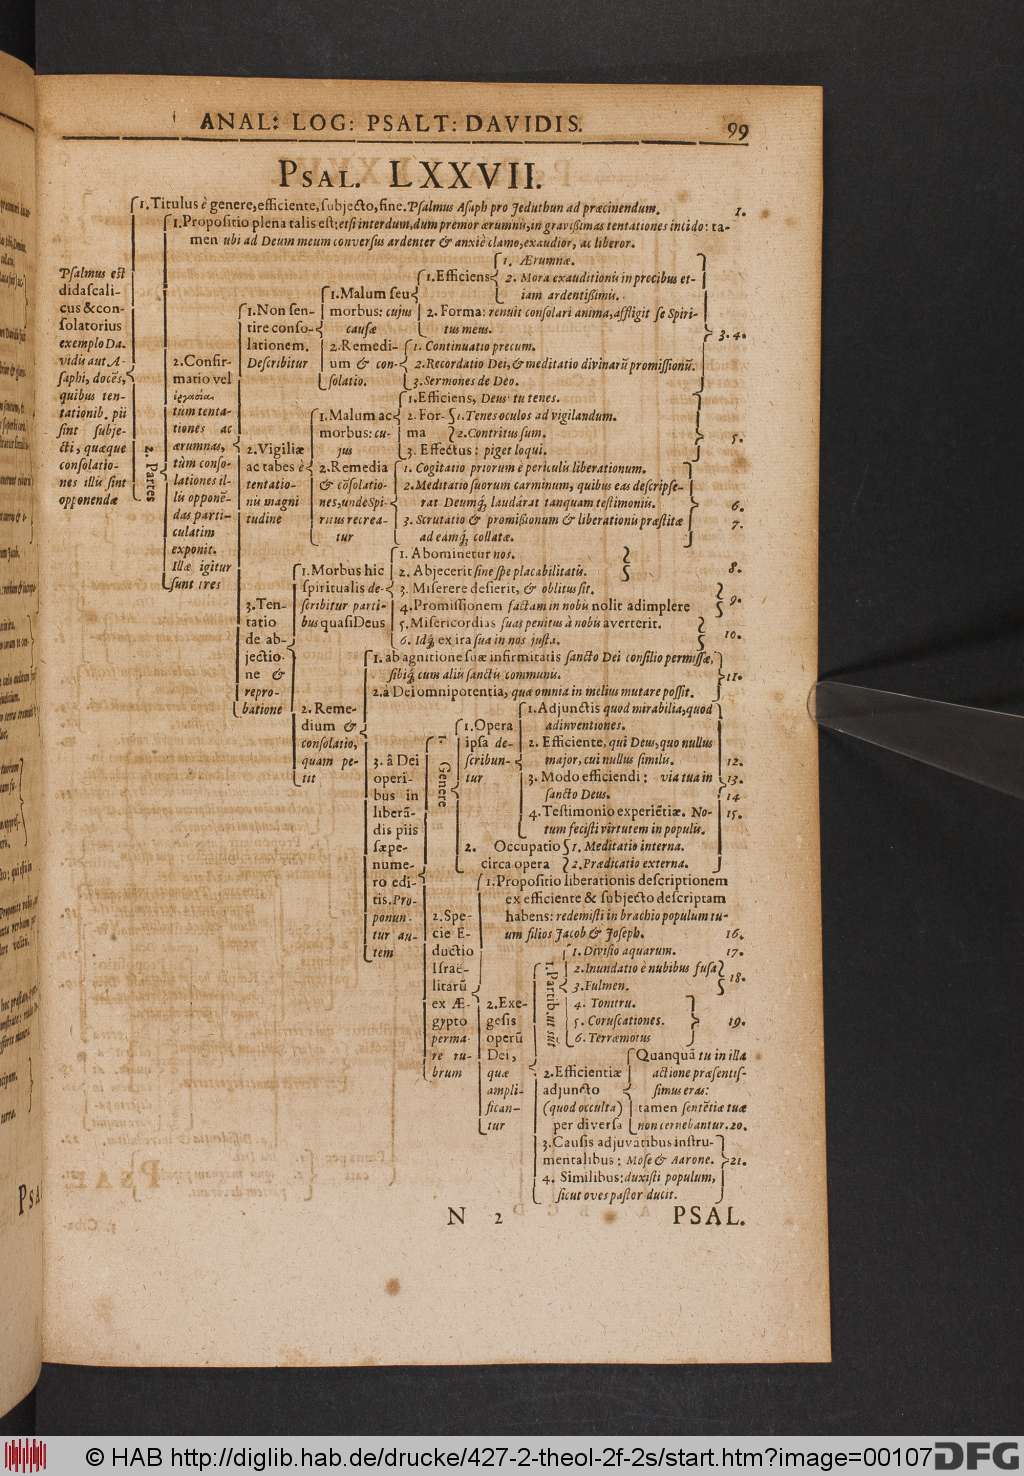 ANAL: LOG: PSALT: DAVIDIS. 99
PSAL. LXXVII.
1. Titulus è genere, efficiente, subjecto, fine. Psalmus Asaph pro Jeduthun ad præcinendum. 1.
1. Propositio plena talis est: etsi interdum, dum premor ærumnis, in gravissimas tentationes incido: ta-
men ubi ad Deum meum conversus ardenter & anxiè clamo, exaudior, ac liberor.
Psalmus est
didascali-
cus & con-
solatorius
exemplo Da-
vidis aut A-
saphi, docēs,
quibus ten-
tationib. pii
sint subje-
cti, quæque
consolatio-
nes illis sint
opponendæ
2. Partes
2. Confir-
matio vel
ἐργασία
tum tenta-
tiones ac
ærumnas,
tùm conso-
lationes il-
lis opponē-
das parti-
culatim
exponit.
Illæ igitur
sunt tres
1. Non sen-
tire conso-
lationem.
Describitur
1. Malum seu
morbus: cujus
causæ
1. Efficiens
1. Ærumnæ.
2. Mora exauditionis in precibus et-
iam ardentissimis.
2. Forma: renuit consolari anima, affligit se Spiri-
tus meus.
3. 4.
2. Remedi-
um & con-
solatio.
1. Continuatio precum.
2. Recordatio Dei, & meditatio divinarū promissionū.
3. Sermones de Deo.
2. Vigiliæ
ac tabes è
tentatio-
nis magni
tudine
1. Malum ac
morbus: cu-
jus
1. Efficiens, Deus: tu tenes.
2. For-
ma
1. Tenes oculos ad vigilandum.
2. Contritus sum.
3. Effectus: piget loqui.
5.
2. Remedia
& cōsolatio-
nes, unde Spi-
ritus recrea-
tur
1. Cogitatio priorum è periculis liberationum.
2. Meditatio suorum carminum, quibus eas descripse-
rat Deumq́, laudârat tanquam testimonius.
6.
3. Scrutatio & promissionum & liberationis præstitæ
ad eamq́, collatæ.
7.
3. Ten-
tatio
de ab-
jectio-
ne &
repro-
batione
1. Morbus hic
spiritualis de-
scribitur parti-
bus quasi Deus
1. Abominetur nos.
2. Abjecerit sine spe placabilitatis.
8.
3. Miserere desierit, & oblitus sit.
4. Promissionem factam in nobis nolit adimplere
9.
5. Misericordias suas penitus à nobis averterit.
6. Idq́, ex ira sua in nos justa.
10.
2. Reme-
dium &
consolatio,
quam pe-
tit
1. ab agnitione suæ infirmitatis sancto Dei consilio permissæ,
sibiq́, cum aliis sanctis communis.
2. à Dei omnipotentia, quæ omnia in melius mutare possit.
11.
3. â Dei
operi-
bus in
liberā-
dis piis
sæpe-
nume-
ro edi-
tis. Pro-
ponun-
tur au-
tem
1. Genere
1. Opera
ipsa de-
scribun-
tur
1. Adjunctis quod mirabilia, quod
adinventiones.
2. Efficiente, qui Deus, quo nullus
major, cui nullus similis.
12.
3. Modo efficiendi: via tua in
sancto Deus.
13.
14
4. Testimonio experiētiæ. No-
tum fecisti virtutem in populis.
15.
2. Occupatio
circa opera
1. Meditatio interna.
2. Prædicatio externa.
2. Spe-
cie E-
ductio
Israë-
litarū
ex Æ-
gypto
perma-
re ru-
brum
1. Propositio liberationis descriptionem
ex efficiente & subjecto descriptam
habens: redemisti in brachio populum tu-
um filios Jacob & Joseph. 16.
2. Exe-
gesis
operū
Dei,
quæ
ampli-
fican-
tur
1. Partib. ut sūt
1. Divisio aquarum. 17.
2. Inundatio è nubibus fusa
3. Fulmen.
18.
4. Tonitru.
5. Coruscationes. 19.
6. Terræmotus
2. Efficientiæ
adjuncto
(quod occulta)
per diversa
Quanquā tu in illa
actione præsentis-
simus eras:
tamen sentētiæ tuæ
non cernebantur. 20.
3. Causis adjuvātibus instru-
mentalibus: Mose & Aarone. 21.
4. Similibus: duxisti populum,
sicut oves pastor ducit.
N 2 PSAL.
© HAB http://diglib.hab.de/drucke/427-2-theol-2f-2s/start.htm?image=00107
DFG